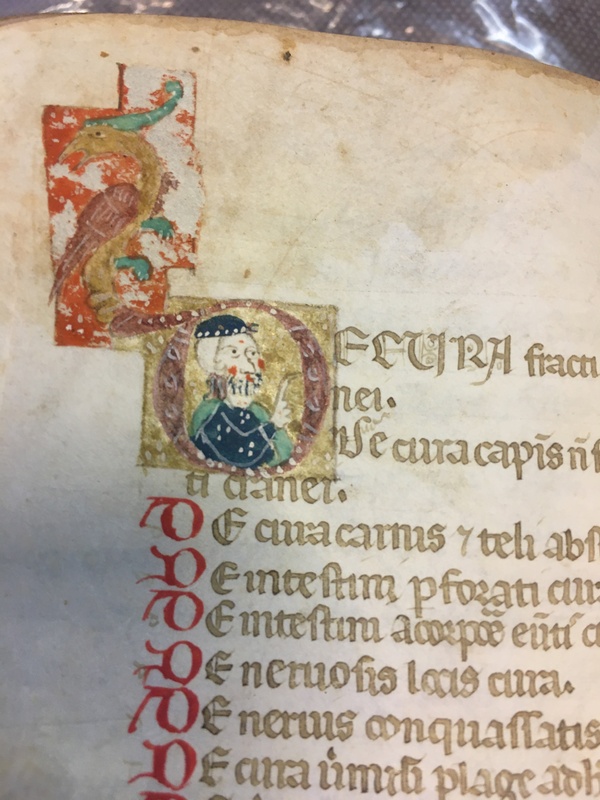 DE CURA fracti
nei.
De cura capis
ti cranei.
DE cura carnis ⁊ teli abs
DE intestini pforati cur
DE intestini
DE neruosis locis cura.
DE neruis conquassatis
DE cura plage adh